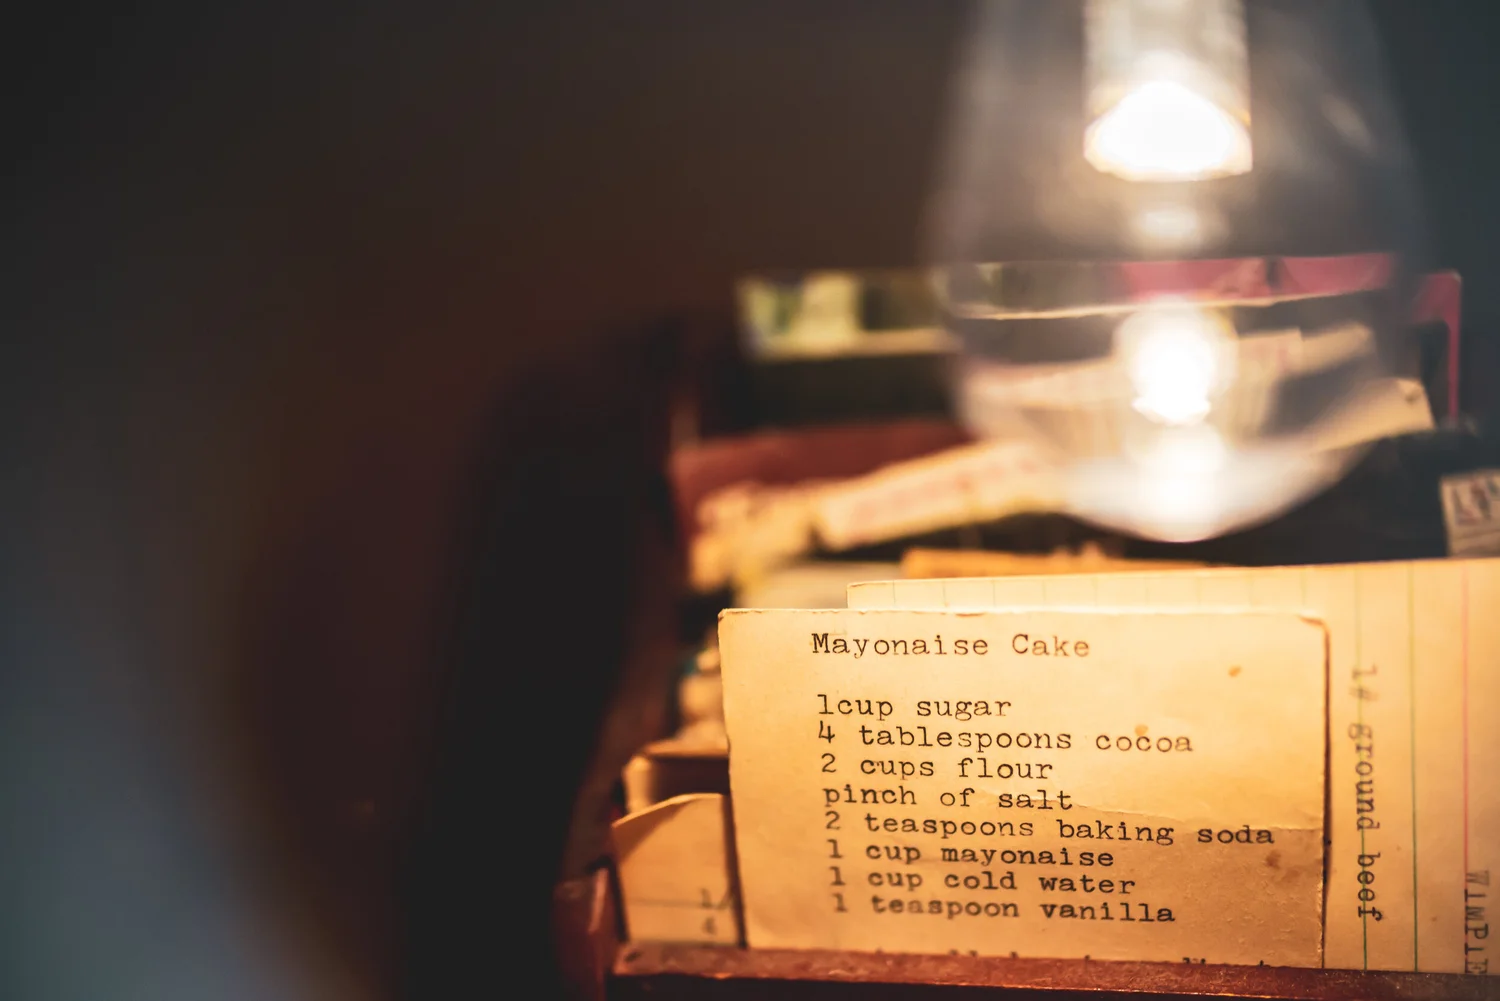 Mayonaise Cake
1cup sugar
4 tablespoons cocoa
2 cups flour
pinch of salt
2 teaspoons baking soda
1 cup mayonaise
1 cup cold water
1 teaspoon vanilla
1# ground beef
WIMPIE
1/
4